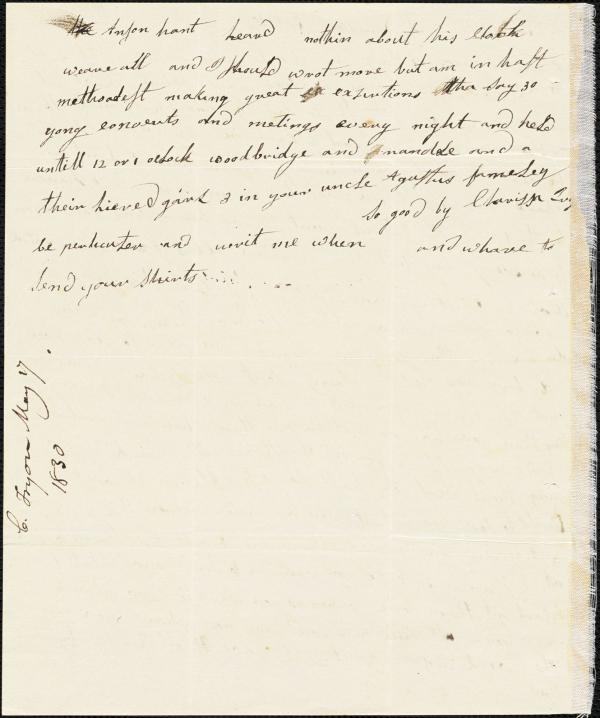 the Anson hant heard nothin about his Clock
weare all and I should wrot more but am in haft
methodest making great expirtions tha say 30
yong convents and metings every night and held
untill 12 or 1 oclock woodbridge and and a
their hiered gairl 3 in your uncle Agustus famely
So good by Clarissa Try
be perticuler and writ me when and whare to
Send your Shirts
C. Tryon May 17
1830